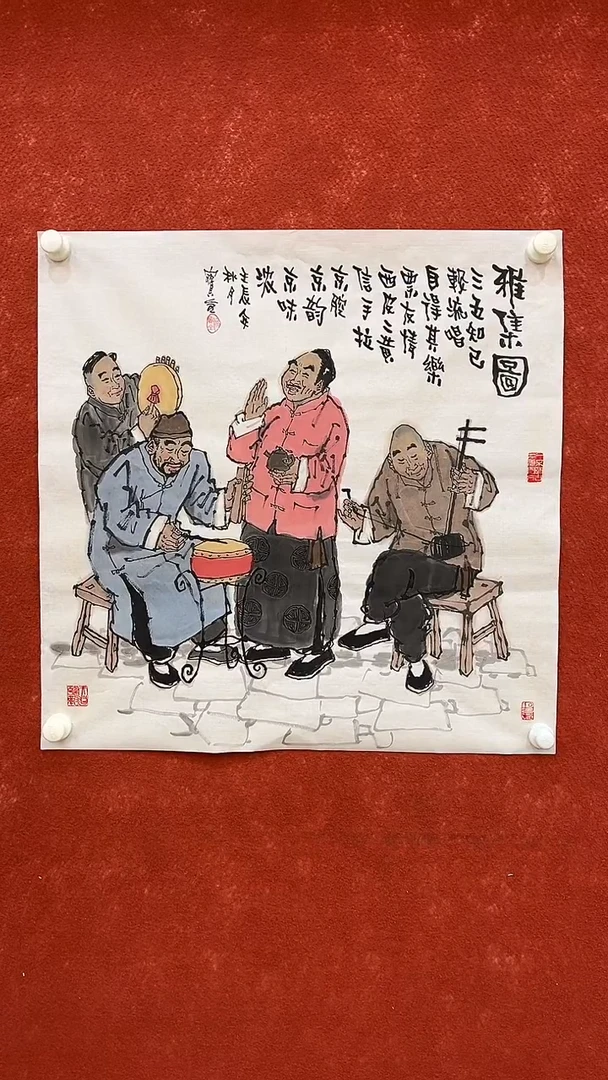 雅集圖
三五知己
唱
自得其樂
票友情
西皮二黄
信手拉
京腔
京韵
京味
浓
壬辰年
秋月